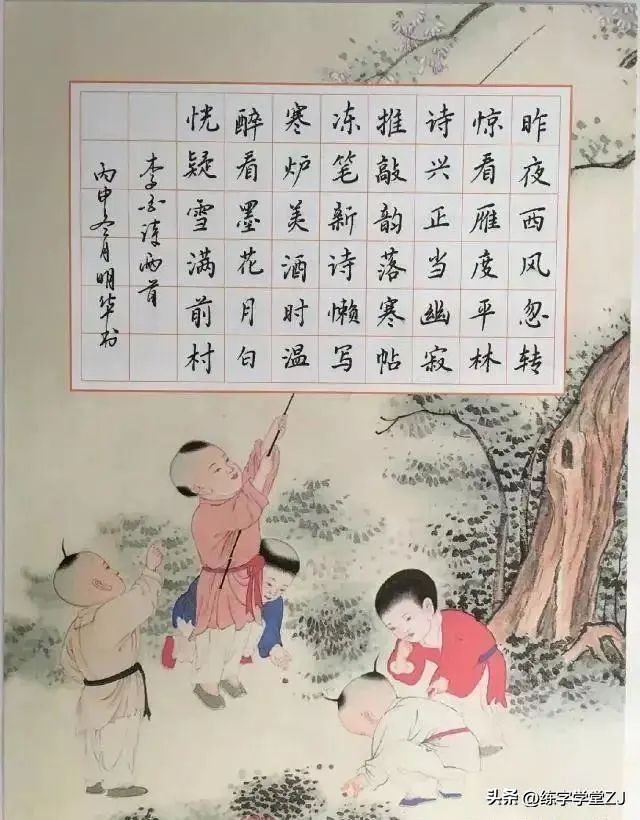 昨夜西风忽转
惊看雁度平林
诗兴正当幽寂
推敲韵落寒帖
冻笔新诗懒写
寒炉美酒时温
醉看墨花月白
恍疑雪满前村
李白诗两首
丙申冬月明华书
头条 @练字学堂ZJ